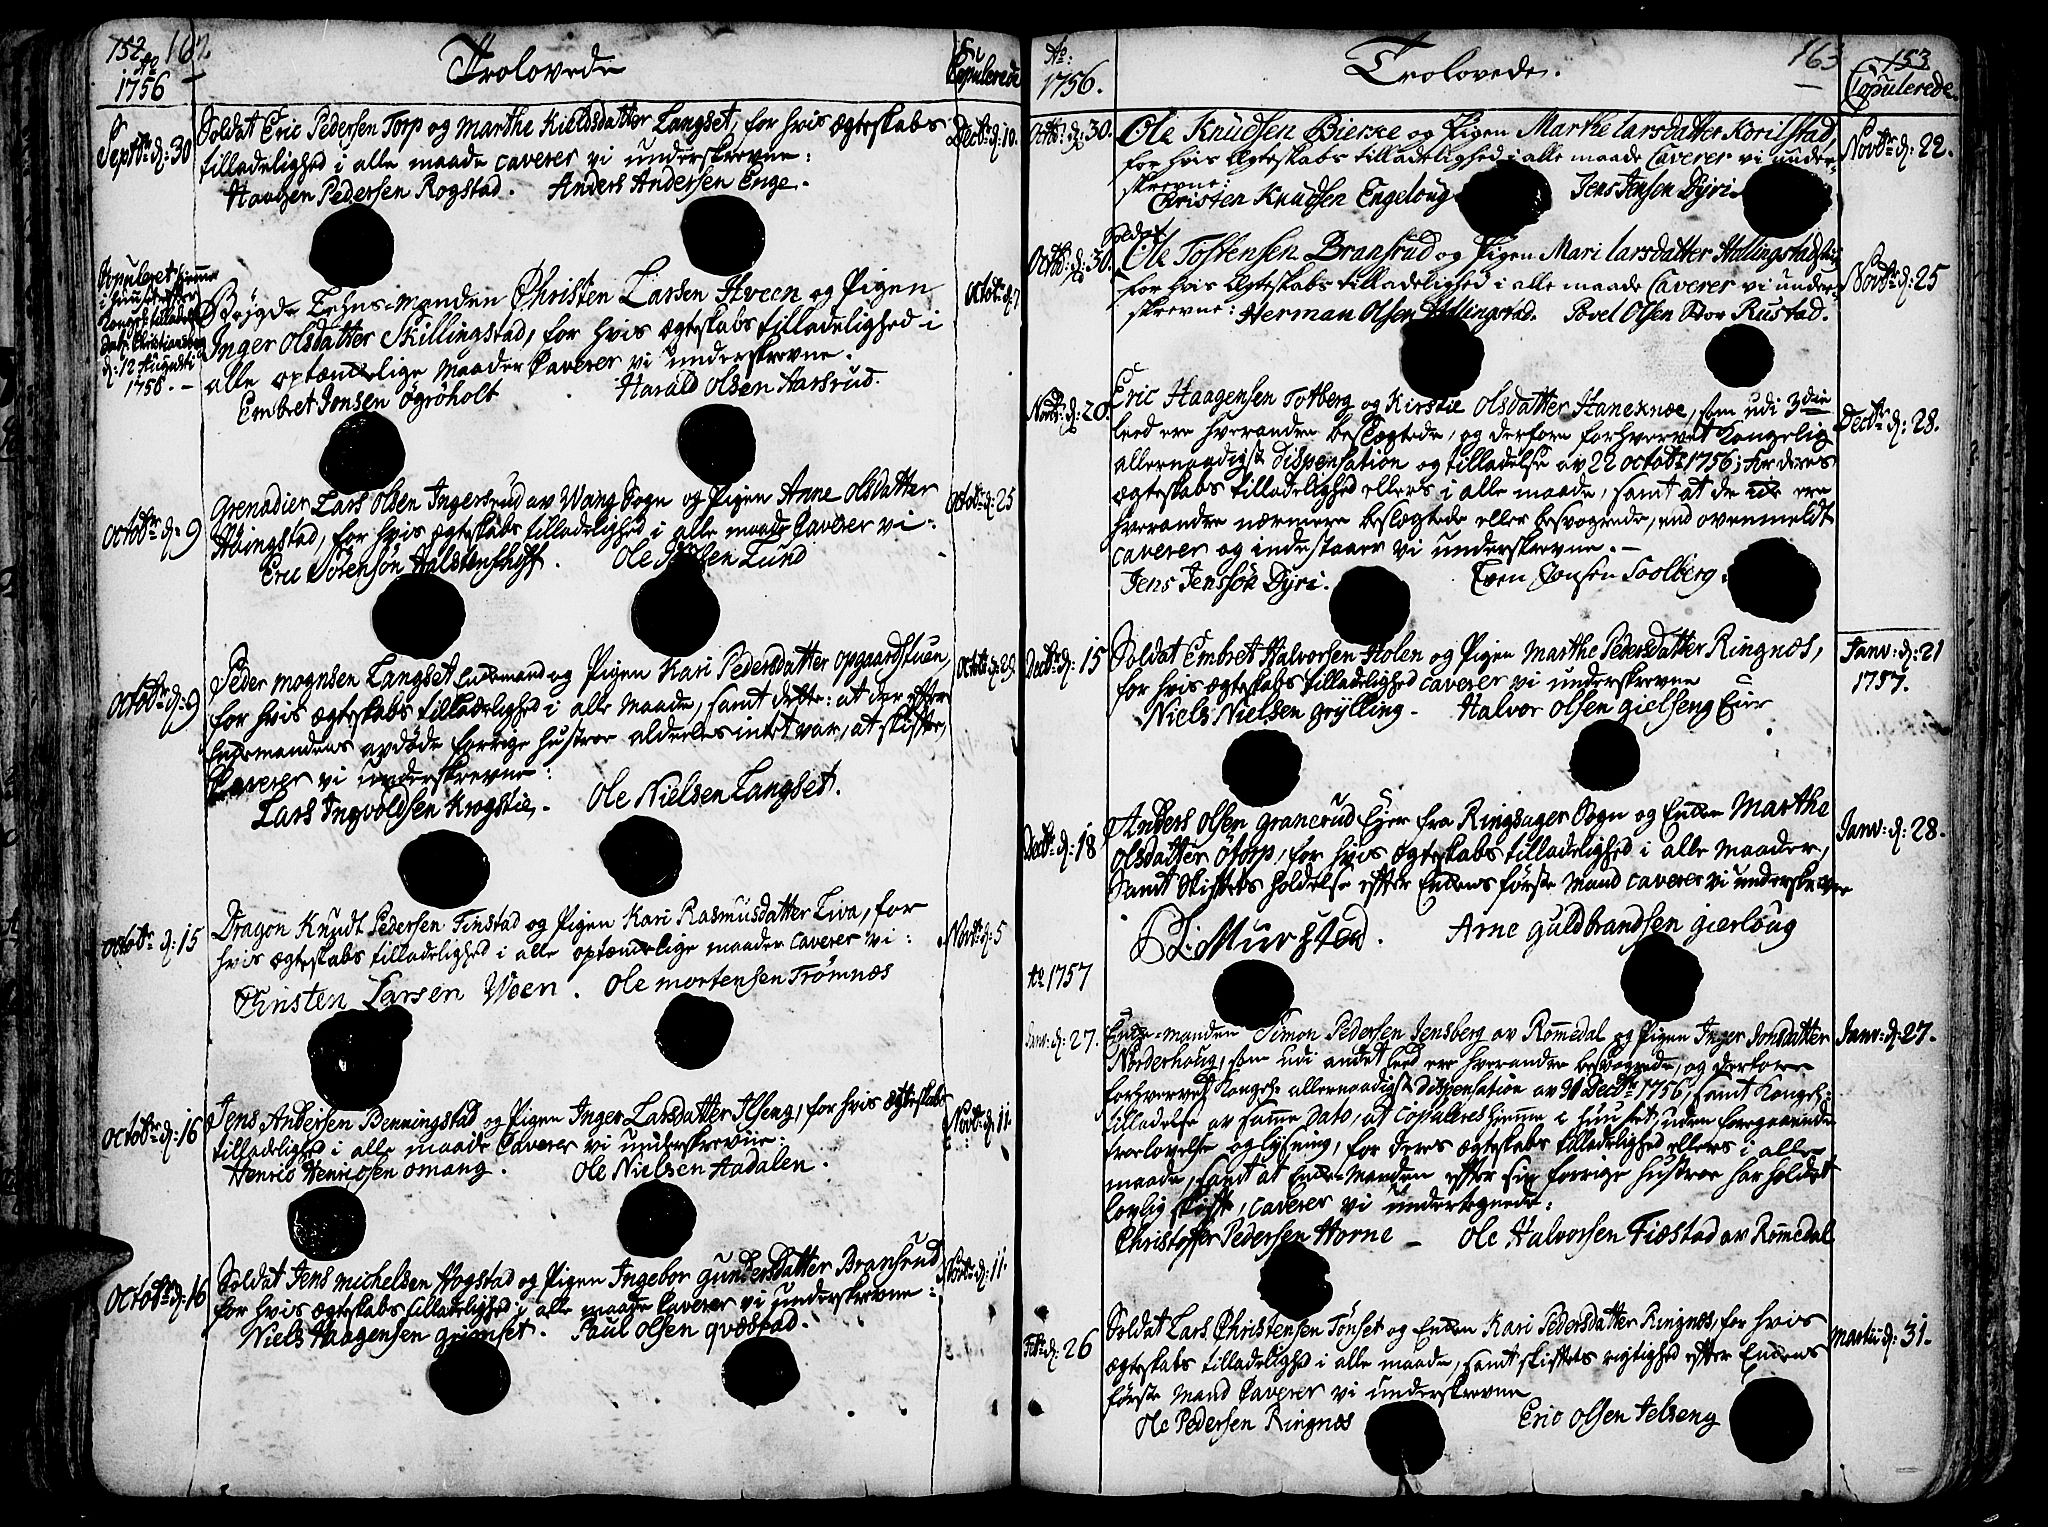 152 162
Ao 1756
Trolovede
Copulerede
Septbr d: 30
Soldat Eric Pedersen Torp og Marthe Kieldsdatter Langset, for hvis ægteskabs
tilladelighed i alle maade caverer vi underskrevne:
Haagen Pedersen Rogstad. Anders Andersen Enge.
Decbr d: 10.
Copuleret hiemme
i huuset efter
Kongel: tilladelse
Christiansborg
d: 12 Augusti
1756. –
Bøigde Lehns-manden Christen Larsen Hveen og Pigen
Inger Olsdatter Skillingstad, for hvis ægteskabs tilladelighed i
alle optænkelige maader Caverer vi underskrevne.
Embret Jonsen Ögröholt Harald Olsen Aarsrud.
Octobr d: 7
Octobr d: 9
Grenadier Lars Olsen Ingersrud av Wang Sogn og Pigen Anne Olsdatter
Hvingstad, for hvis ægteskabs tilladelighed i alle maade Caverer vi:
Eric Sörensön Halstenshoff. Ole Lund
Octobr d: 25
Octobr d: 9
Peder Mognsen Langset Enkemand og Pigen Kari Pedersdatter Opgaardstuen,
for hvis ægteskabs tilladelighed i alle maade, samt dette: at der efter
Enkemandens avdøde forrige hustroe aldeeles intet var, at skifte,
Caverer vi underskrevne:
Lars Ingvoldsen Krogstie. Ole Nielsen Langset.
Octobr d: 29.
Octobr d: 15
Dragon Knudt Pedersen Finstad og Pigen Kari Rasmusdatter Liva, for
hvis ægteskabs tilladelighed i alle optænkelige maader caverer vi:
Christen Larsen Woen. Ole Mortensen Trömnæs
Novbr d: 5
Octobr d: 16
Jens Andersen Benningstad og Pigen Inger Larsdatter Ilseng, for hvis ægteskabs
tilladelighed i alle maade Caverer vi underskrevne:
Henric Henricsen Omang. Ole Nielsen Aadalen.
Novbr d: 11.
Octobr d: 16
Soldat Jens Michelsen Hogstad og Pigen Ingebor Gundersdatter Bransrud
for hvis ægteskabs tilladelighed i alle maade Caverer vi underskrevne:
Niels Haagensen Grimset. Paul Olsen Qvæstad.
Novbr d: 11.
Ao: 1756.
Trolovede.
163 153
Copulerede.
Octbr: d: 30.
Ole Knudsen Bierke og Pigen Marthe Larsdatter Korilstad,
for hvis Ægteskabs tilladelighed i alle maade Caverer vi under-
skrevne:
Christen Knudsen Engeloug Jens Jensen Dyri
Novbr d: 22.
Octbr: d: 30.
Soldat
Ole Tostensen Bransrud og Pigen Mari Larsdatter Hallingstad
for hvis Ægteskabs tilladelighed i alle maade Caverer vi under-
skrevne: Herman Olsen Hallingstad. Povel Olsen Stor Rustad.
Novbr: d: 25
Novbr: d: 20.
Eric Haagensen Totberg og Kirstie Olsdatter Haneknæe, som udi 3die
leed ere hverandre beslægtede, og derfore forhvervet Kongelig
allernaadigst dispensation og tilladelse av 22 octobr 1756; for deres
ægteskabs tilladelighed ellers i alle maade, samt at de ere
hverandre nærmere beslægtede eller besvogrede, end ovenmeldt
caverer og indestaaer vi underskrevne. –
Jens Jenssön Dyri. Even Jonsen Soelberg.
Decbr d: 28.
Decbr d: 15
Soldat Embret Halvorsen Holen og Pigen Marthe Pedersdatter Ringnæs,
for hvis ægteskabs tilladelighed caverer vi underskrevne
Niels Nielsen Grylling. Halvor Olsen Gielseng Eier
Janv: d: 21
1757.
Decbr d: 18
Anders Olsen Granerud Eyer fra Ringsager Sogn og Enken Marthe
Olsdatter Otorp, for hvis ægteskabs tilladelighed i alle maader,
Samt Skiftets holdelse efter Enkens første Mand caverer vi underskrevne
P: L: Muurstad. Arne Guldbrandsen Gierloug
Janv: d: 28.
Ao 1757
Janv: d: 27.
Enke-manden Simon Pedersen Jensberg av Romedal og Pigen Inger Jonsdatter
Norderhoug, som udi andet leed ere hverandre besvogrede, og derfore
forhvervet Kongel: allernaadigst Dispensation av 31 Decbr 1756, samt Kongel:
tilladelse av samme Dato, at copuleres hiemme i huuset, uden foregaaende
troelovelse og lysning, for deres ægteskabs tilladelighed ellers i alle
maade, samt at Enke-Manden efter sin forrige hustroe har holdet
lovlig skifte, caverer vi undertegnede:
Christoffer Pedersen Horne – Ole Halvorsen Fiæstad av Romedal
Janv: d: 27.
Febr: d: 26
Soldat Lars Christensen Tönset og Enken Kari Pedersdatter Ringnæs, for hvis
ægteskabs tilladelighed i alle maade, samt skiftets rigtighed efter Enkens
første Mand Caverer vi underskrevne
Ole Pedersen Ringnæs Eric Olsen Jelseng
Martii d: 31.